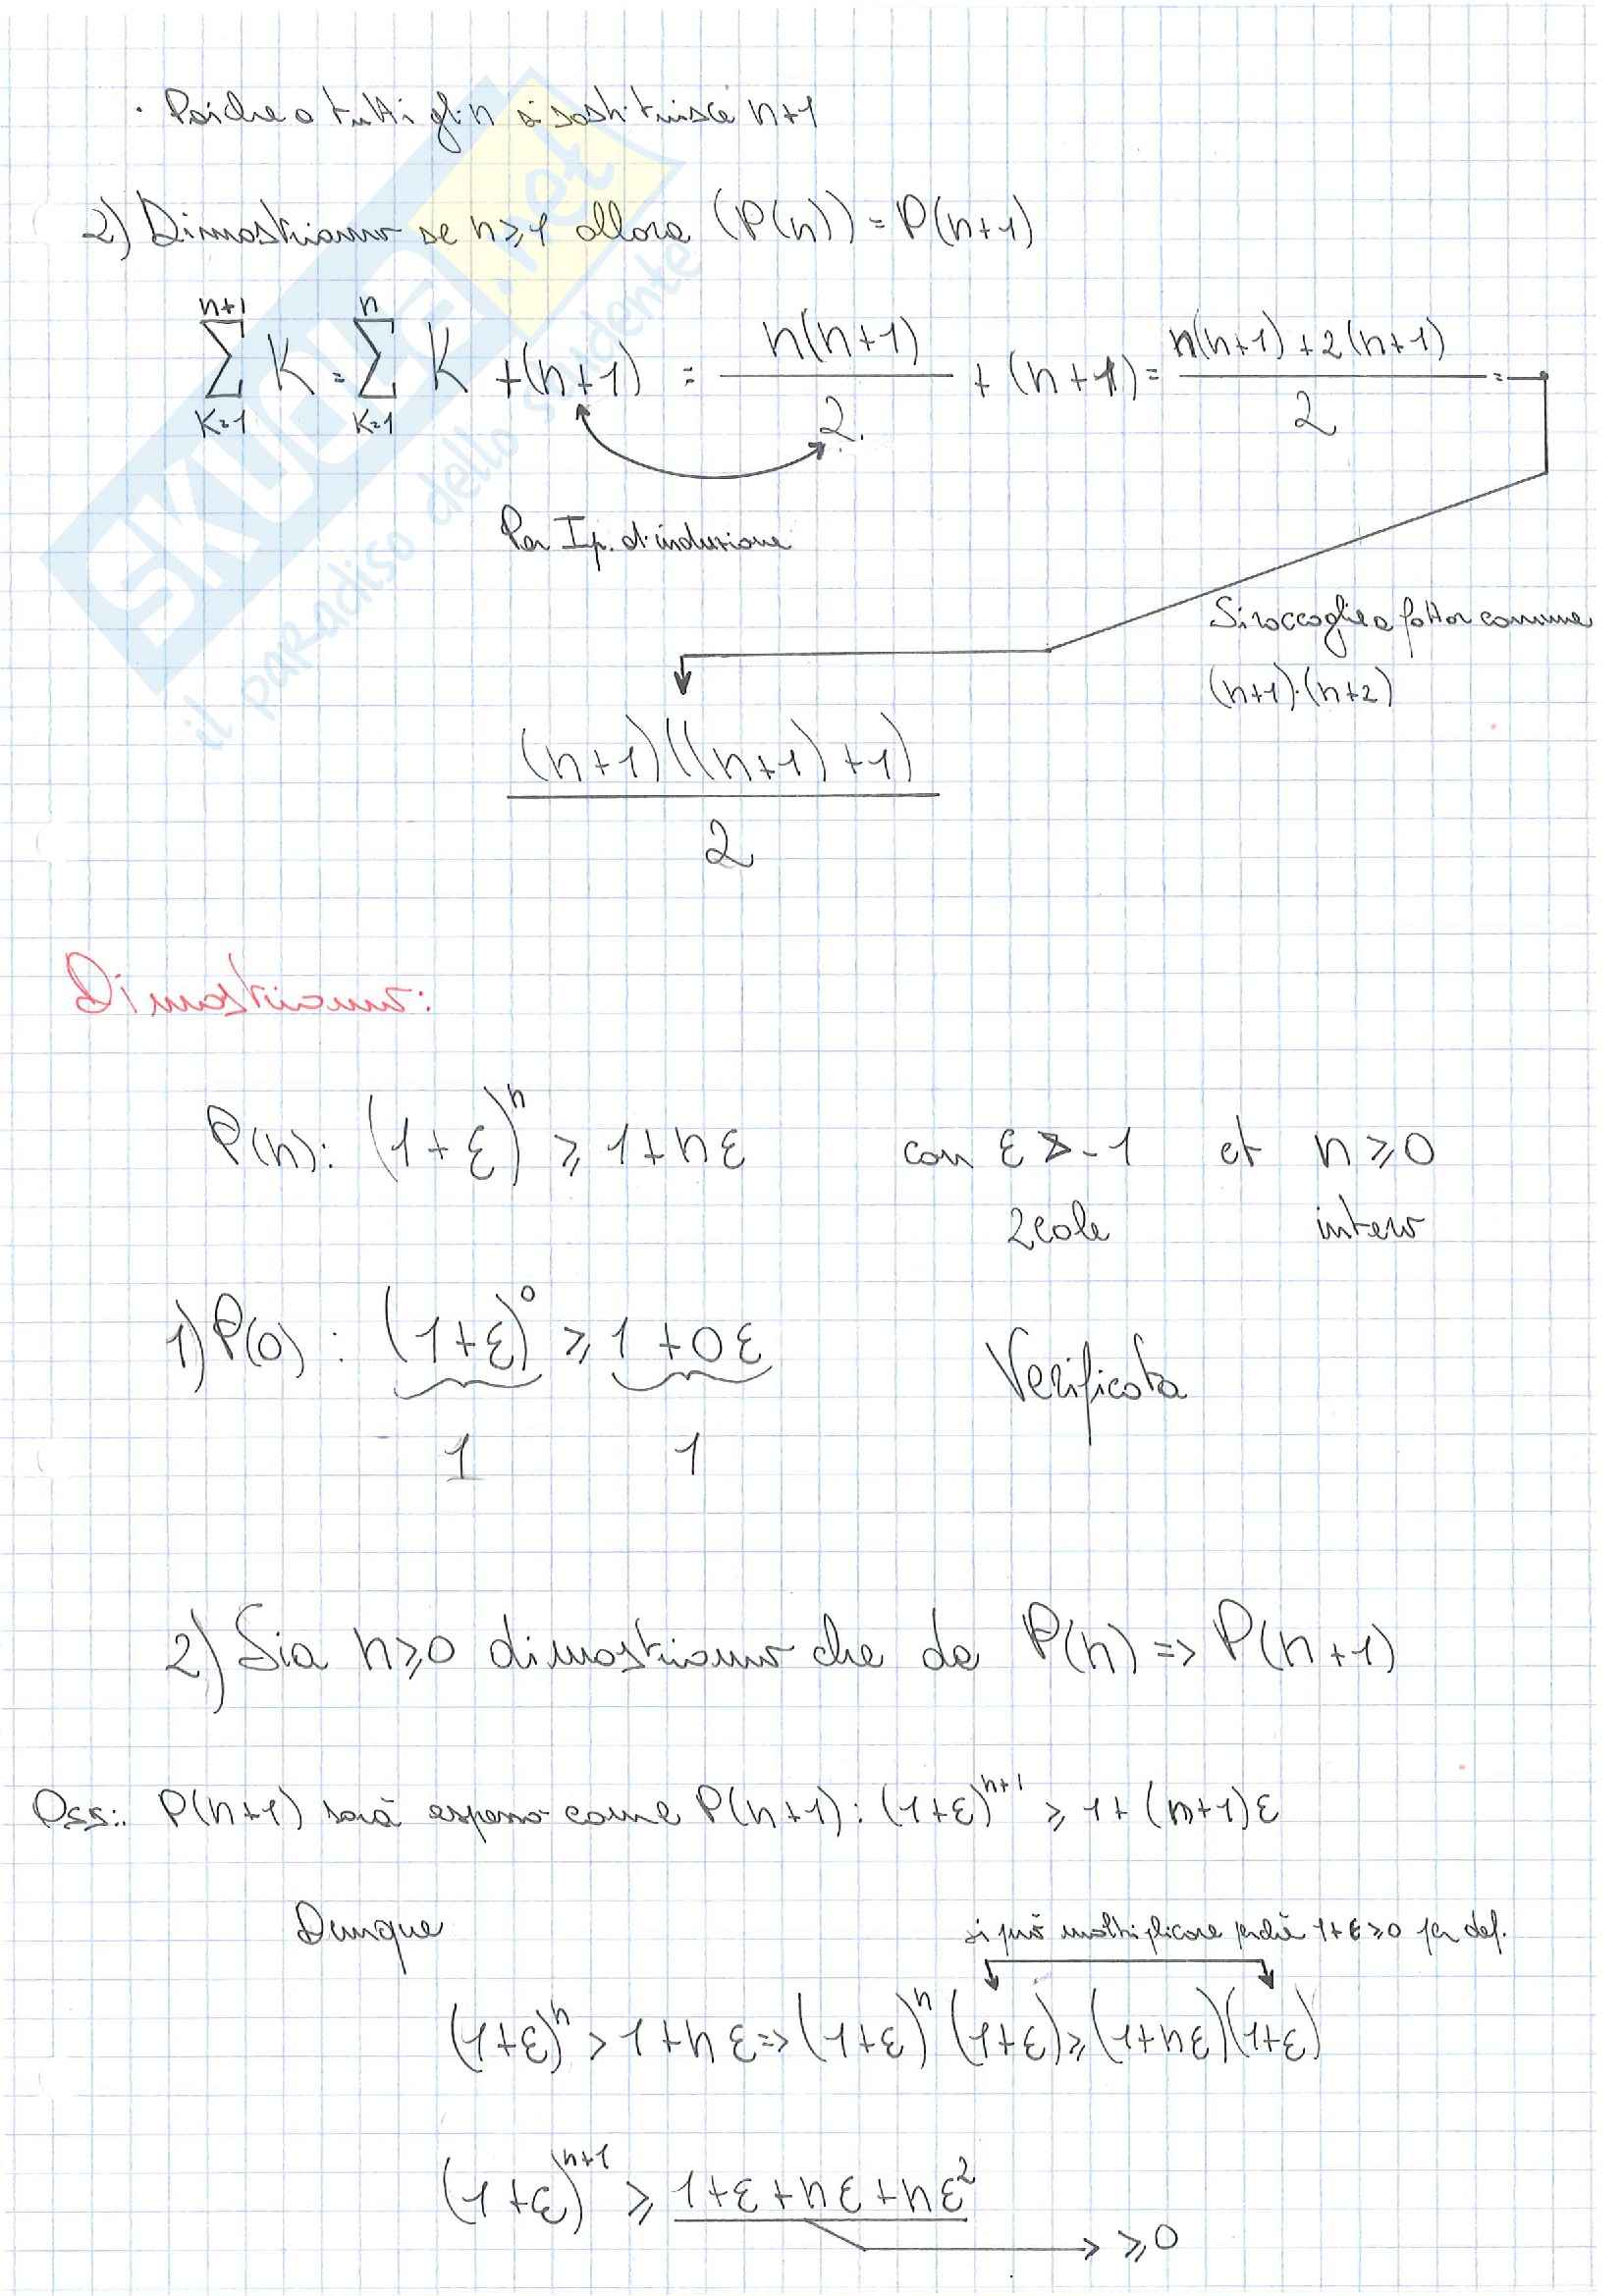 · Poiche a tutti gli n si sostituisce n+1
2) Dimostriamo se n≥1 allora (P(n)) = P(n+1)
n+1 n
∑ K = ∑ K + (n+1) = n(n+1)/2 + (n+1) = (n(n+1)+2(n+1))/2 =
K=1 K=1
Per Ip. di induzione
Si raccoglie a fattor comune
(n+1)·(n+2)
(n+1)((n+1)+1)
2
Dimostriamo:
P(n): (1+ε)^n ≥ 1+nε con ε>-1 et n≥0
reale intero
1) P(0) : (1+ε)^0 ≥ 1+0ε Verificata
1 1
2) Sia n≥0 dimostriamo che da P(n) => P(n+1)
Oss:. P(n+1) sarà espresso come P(n+1): (1+ε)^n+1 ≥ 1+(n+1)ε
Dunque si può moltiplicare perché 1+ε≥0 per def.
(1+ε)^n > 1+nε => (1+ε)^n (1+ε) ≥ (1+nε)(1+ε)
(1+ε)^n+1 ≥ 1+ε+nε+nε²
≥0
SKUOLA.net
il paradiso dello studente